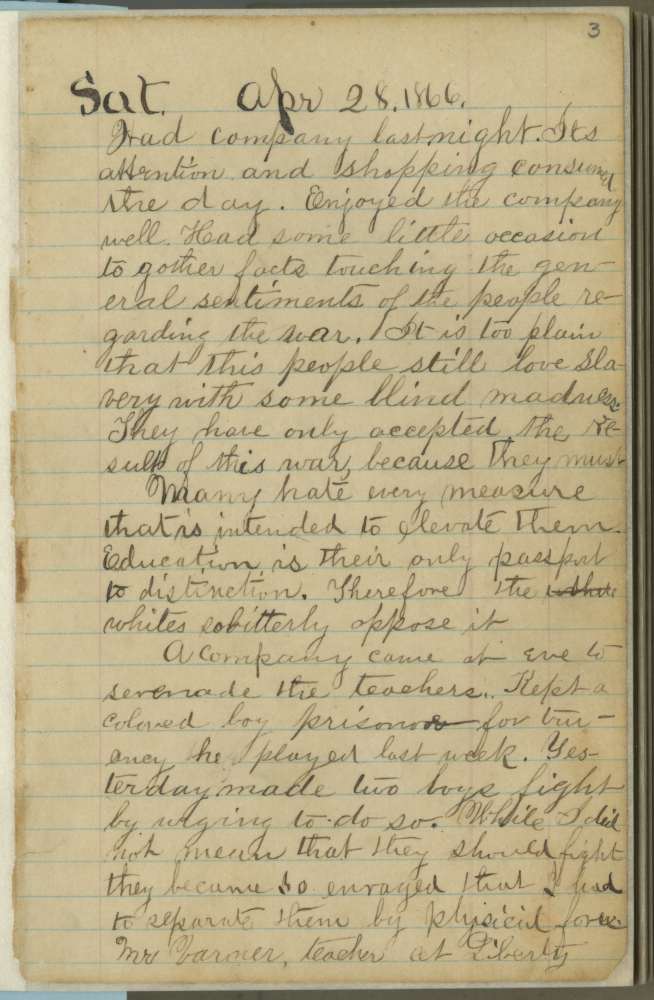 3
Sat. Apr 28. 1866.
Had company last night. Its
attention and shopping consumed
the day. Enjoyed the company
well. Had some little occasion
to gather facts touching the gen-
eral sentiments of the people re-
garding the war. It is too plain
that this people still love Sla-
very with some blind madness.
They have only accepted the Re-
sult of this war, because they must
Many hate every measure
that is intended to elevate them.
Education, is their only passport
to distinction. Therefore the white
whites so bitterly oppose it
A company came at eve to
serenade the teachers. Kept a
colored boy prisoner for tru-
ancy he played last week. Yes-
terday made two boys fight
by urging to do so. While I did
not mean that they should fight
they became so enraged that I had
to separate them by physicial force.
Mr Varner, teacher at Liberty